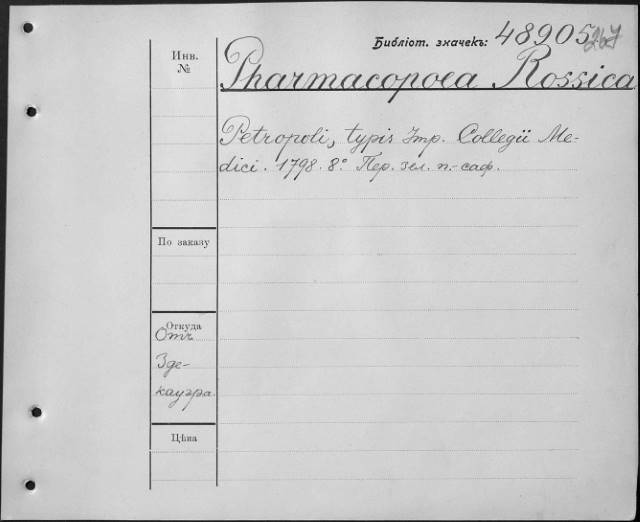 Библіот. значекъ: 48905
Инв.
№
Pharmacopoea Rossica
Petropoli, typis Imp. Collegii Me-
dici. 1798. 8°. Пер. зел. п.-саф.
По заказу
Откуда
Отъ
Зде-
кауэра.
Цѣна